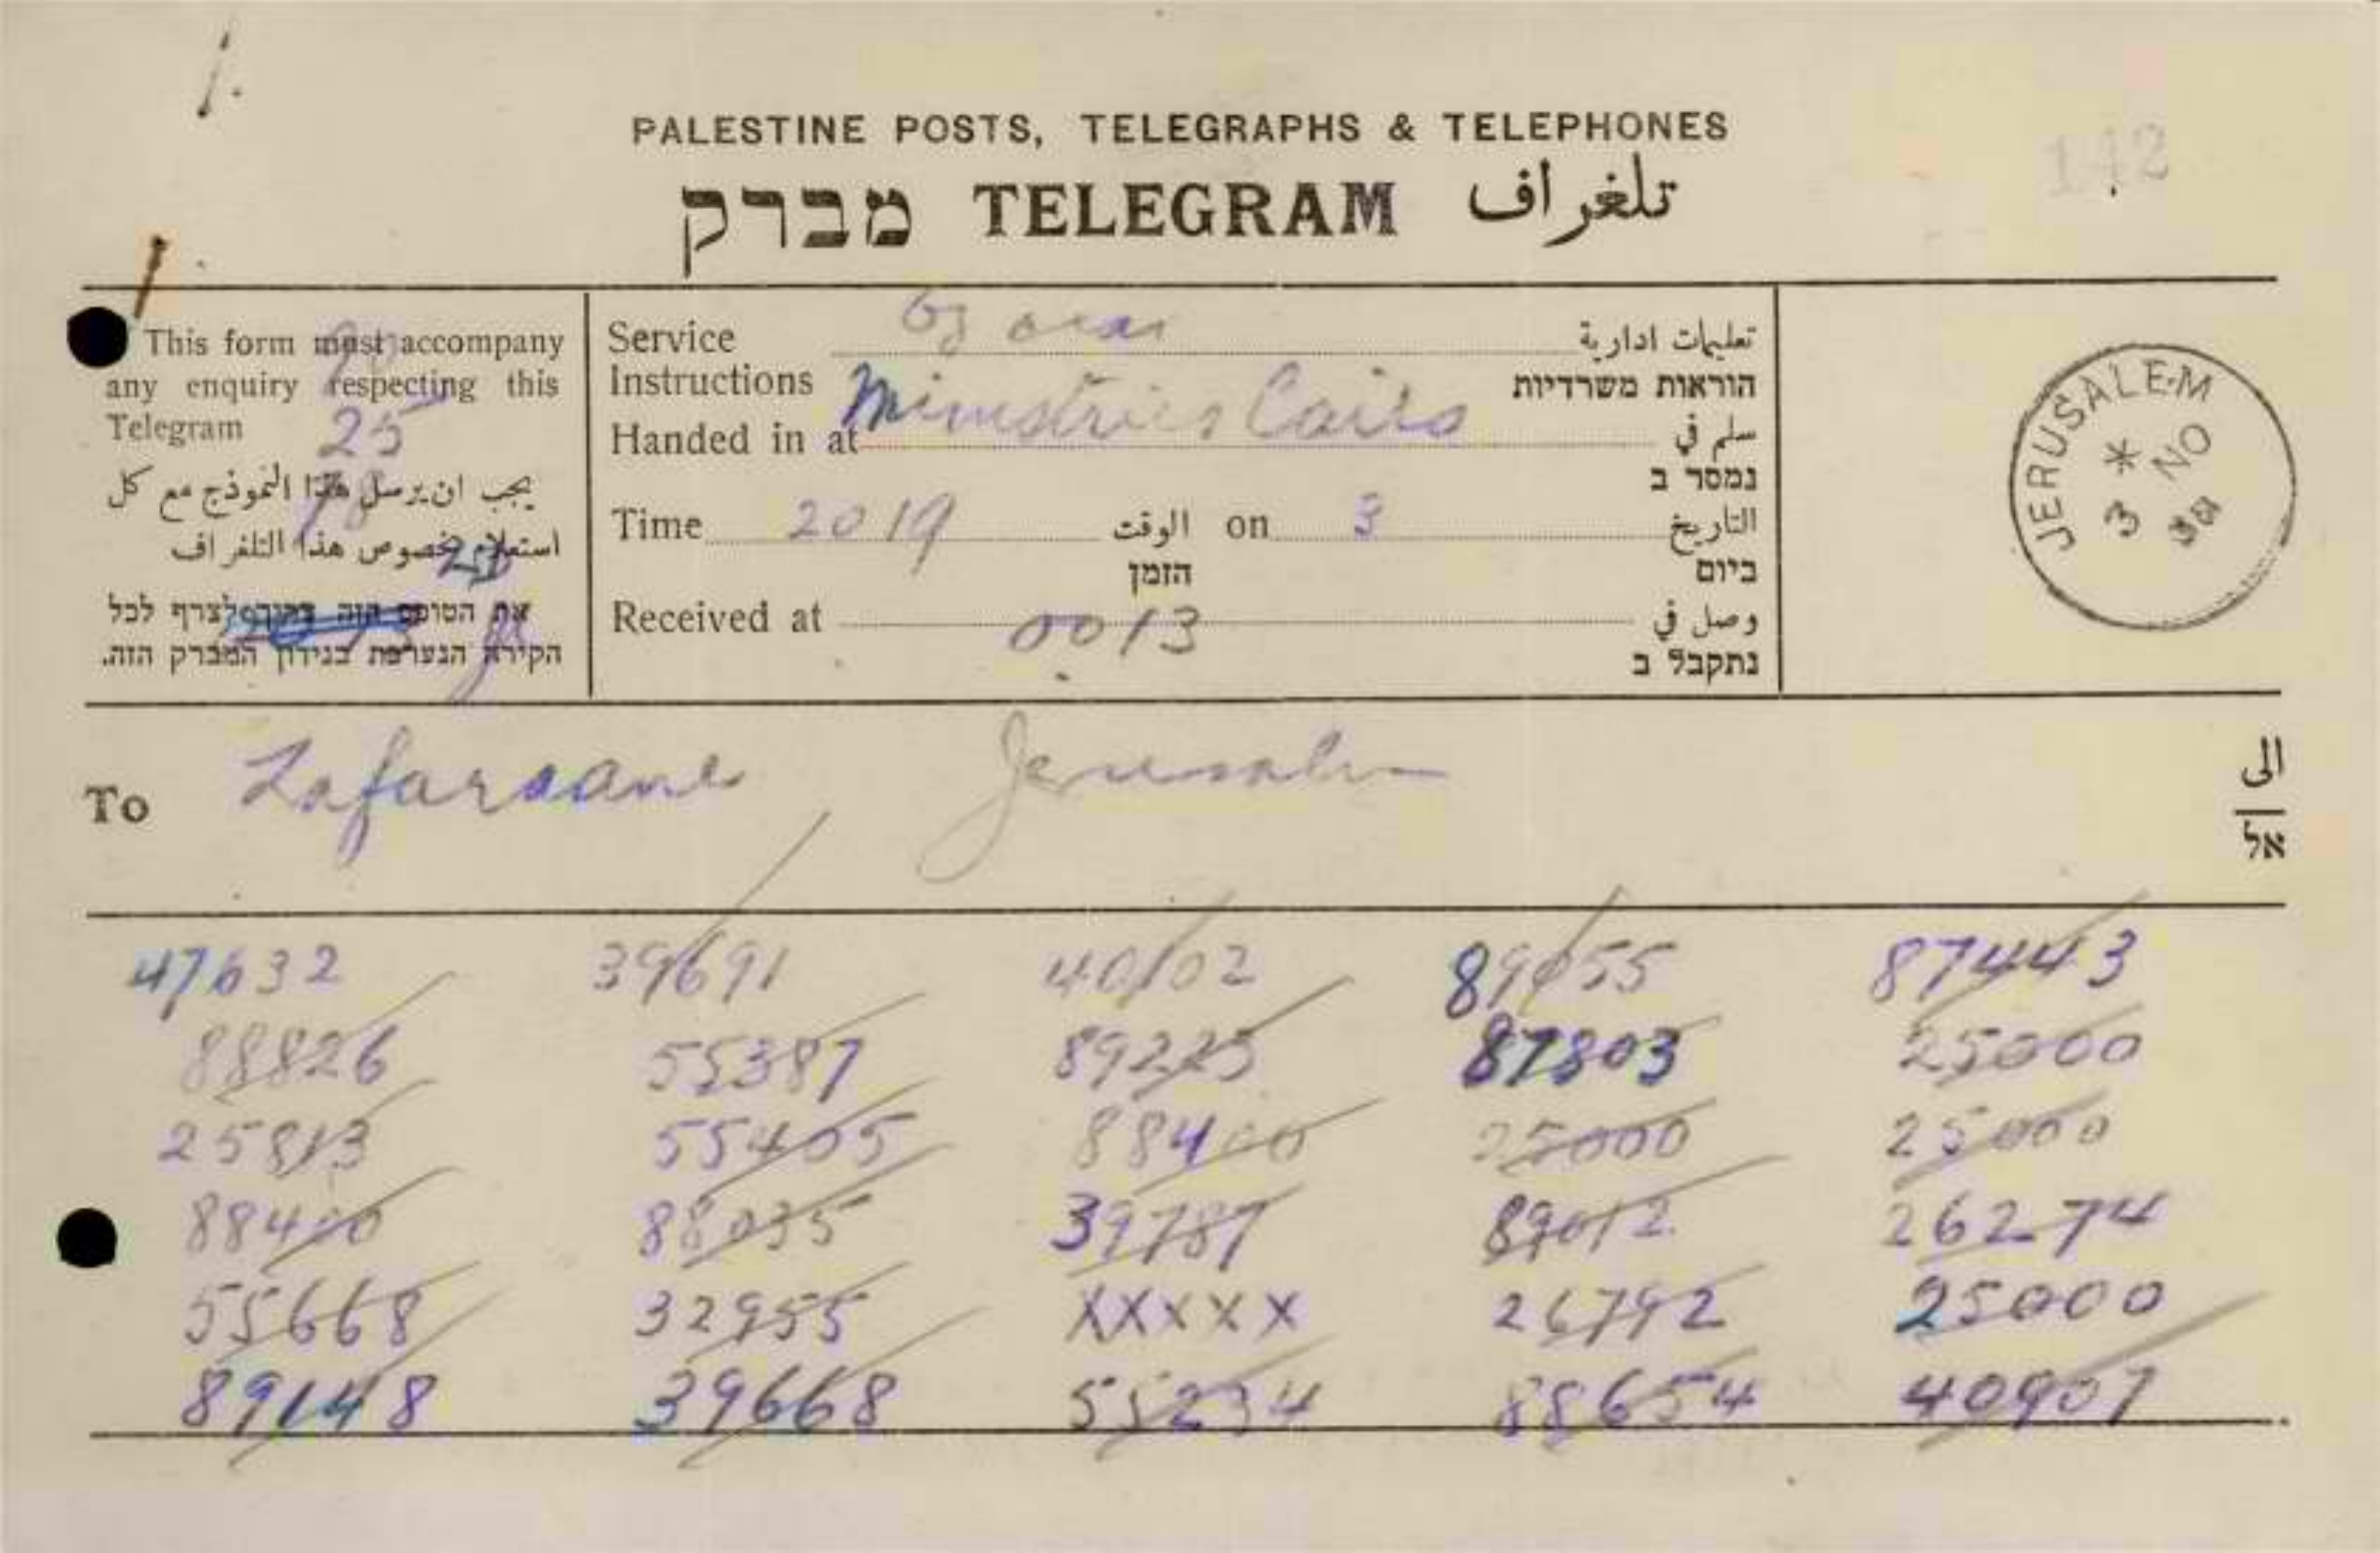 1.
PALESTINE POSTS, TELEGRAPHS & TELEPHONES
142
מברק TELEGRAM تلغراف
This form must accompany
any enquiry respecting this
Telegram
25
يجب ان يرسل هذا النموذج مع كل
استعلام بخصوص هذا التلغراف
את הטופס הזה צריך לצרף לכל
חקירה הנערכת בנידון המברק הזה.
Service تعليمات ادارية
Instructions הוראות משרדיות
Handed in at Ministries Cairo سلم في
נמסר ב
Time 2019 الوقت on 3 التاريخ
הזמן ביום
Received at 0013 وصل في
נתקבל ב
JERUSALEM
* 3 NO
To Lafarsane Jerusalem الى
אל
47632 39691 40102 89055 87443
88826 55387 89225 87803 25000
25813 55405 88400 25000 25000
88400 88035 39787 89012 26274
55668 32955 XXXXX 26792 25000
89148 39668 55234 88654 40907